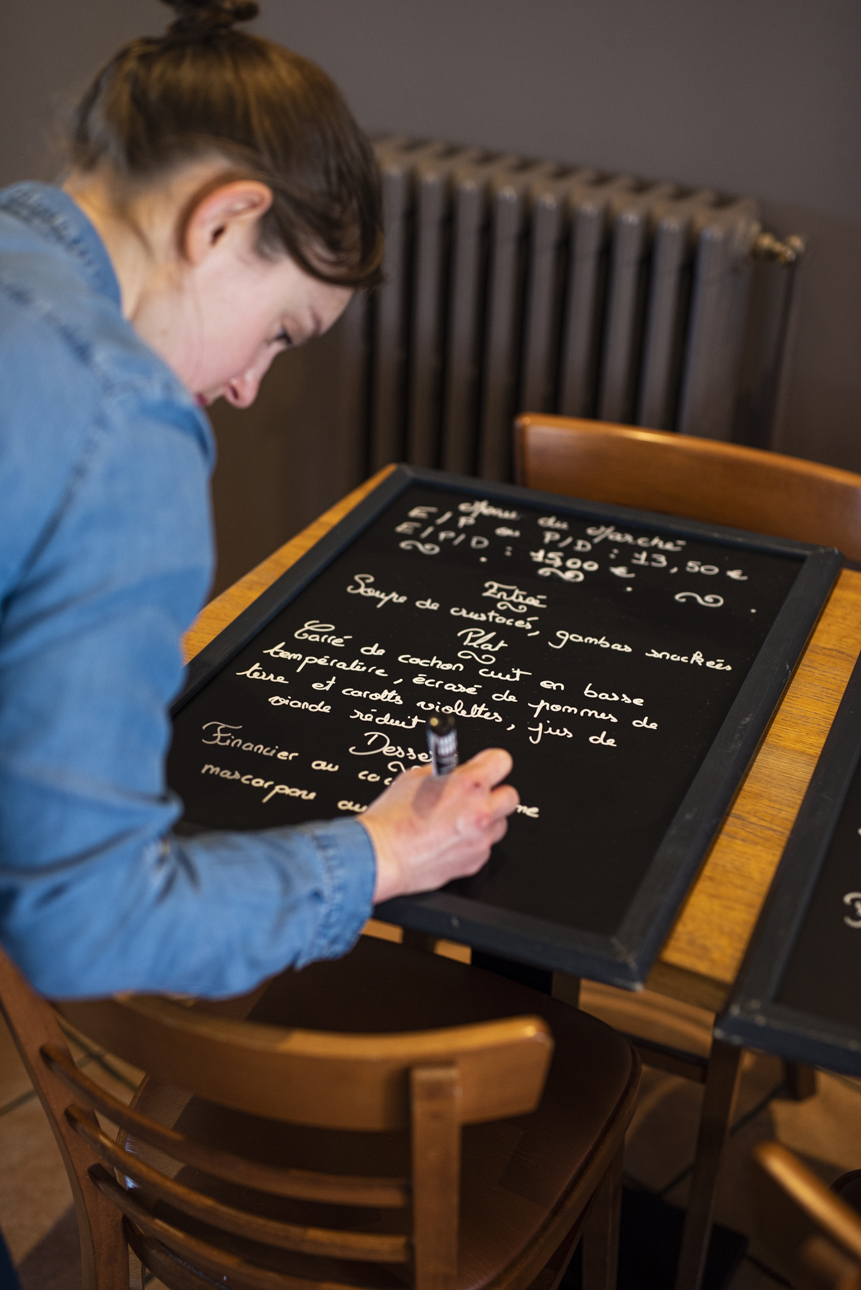 Menu du Marché
E/P ou P/D : 13,50 €
E/P/D : 1500 €
Entrée
Soupe de crustacés, gambas snackées
Plat
Carré de cochon cuit en basse
température, écrasé de pommes de
terre et carottes violettes, jus de
viande réduit
Dessert
Financier au
mascarpone